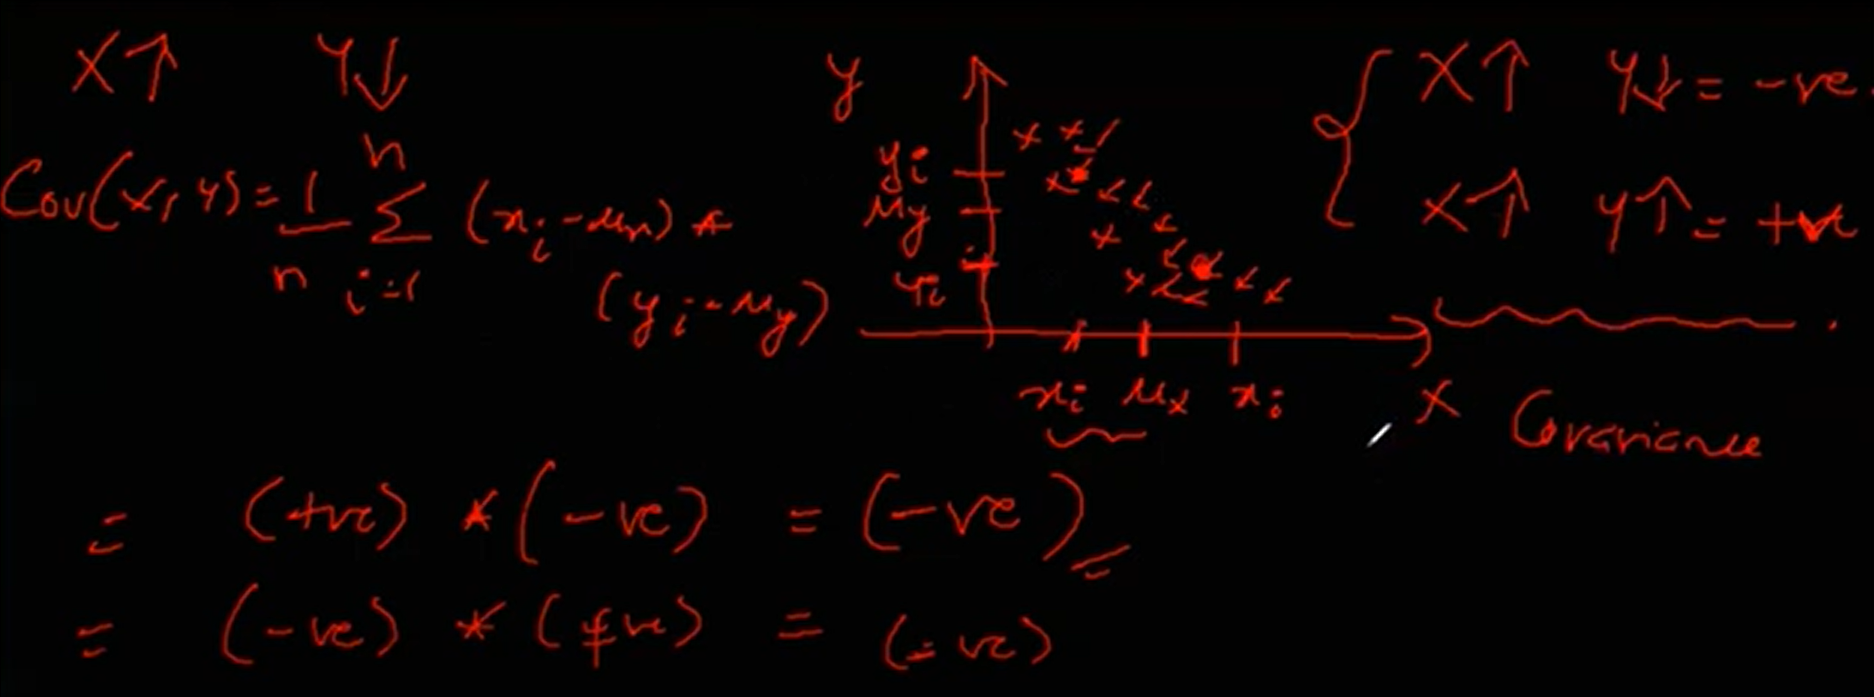 X↑ Y↓
Cov(x, y) = 1/n Σ (x_i - μ_x) *
n
i=1
(y_i - μ_y)
y
y_i
μ_y
y_i
x_i μ_x x_i
X
{ X↑ Y↓ = -ve
X↑ Y↑ = +ve
Covariance
= (+ve) * (-ve) = (-ve)
= (-ve) * (+ve) = (-ve)